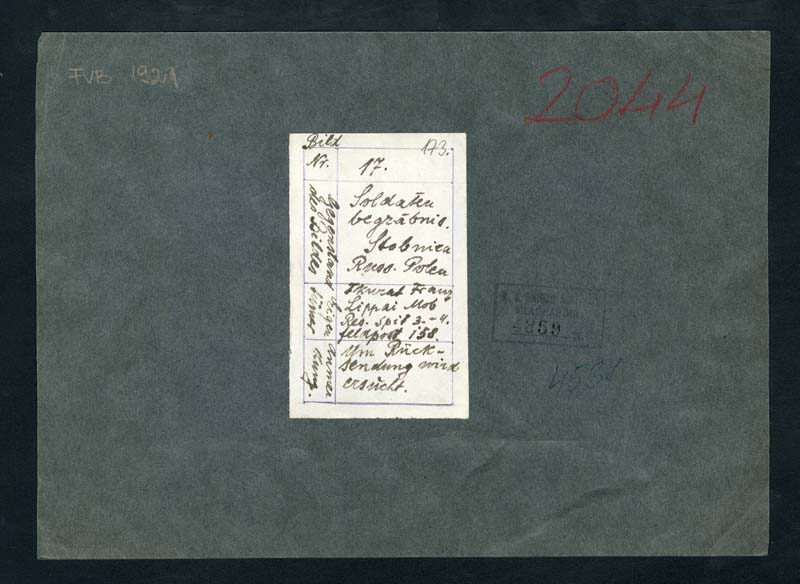 FVB 1921
2044
Bild
Nr.
173.
17.
Gegenstand
des Bildes
Soldaten
begräbnis.
Stobnica
Russ. Polen
Eigen
tümer
Franz
Lippai Mob
Res. Spit 3.-4.
feldpost 158.
Anmer
kung.
Um Rück-
sendung wird
ersucht.
4859